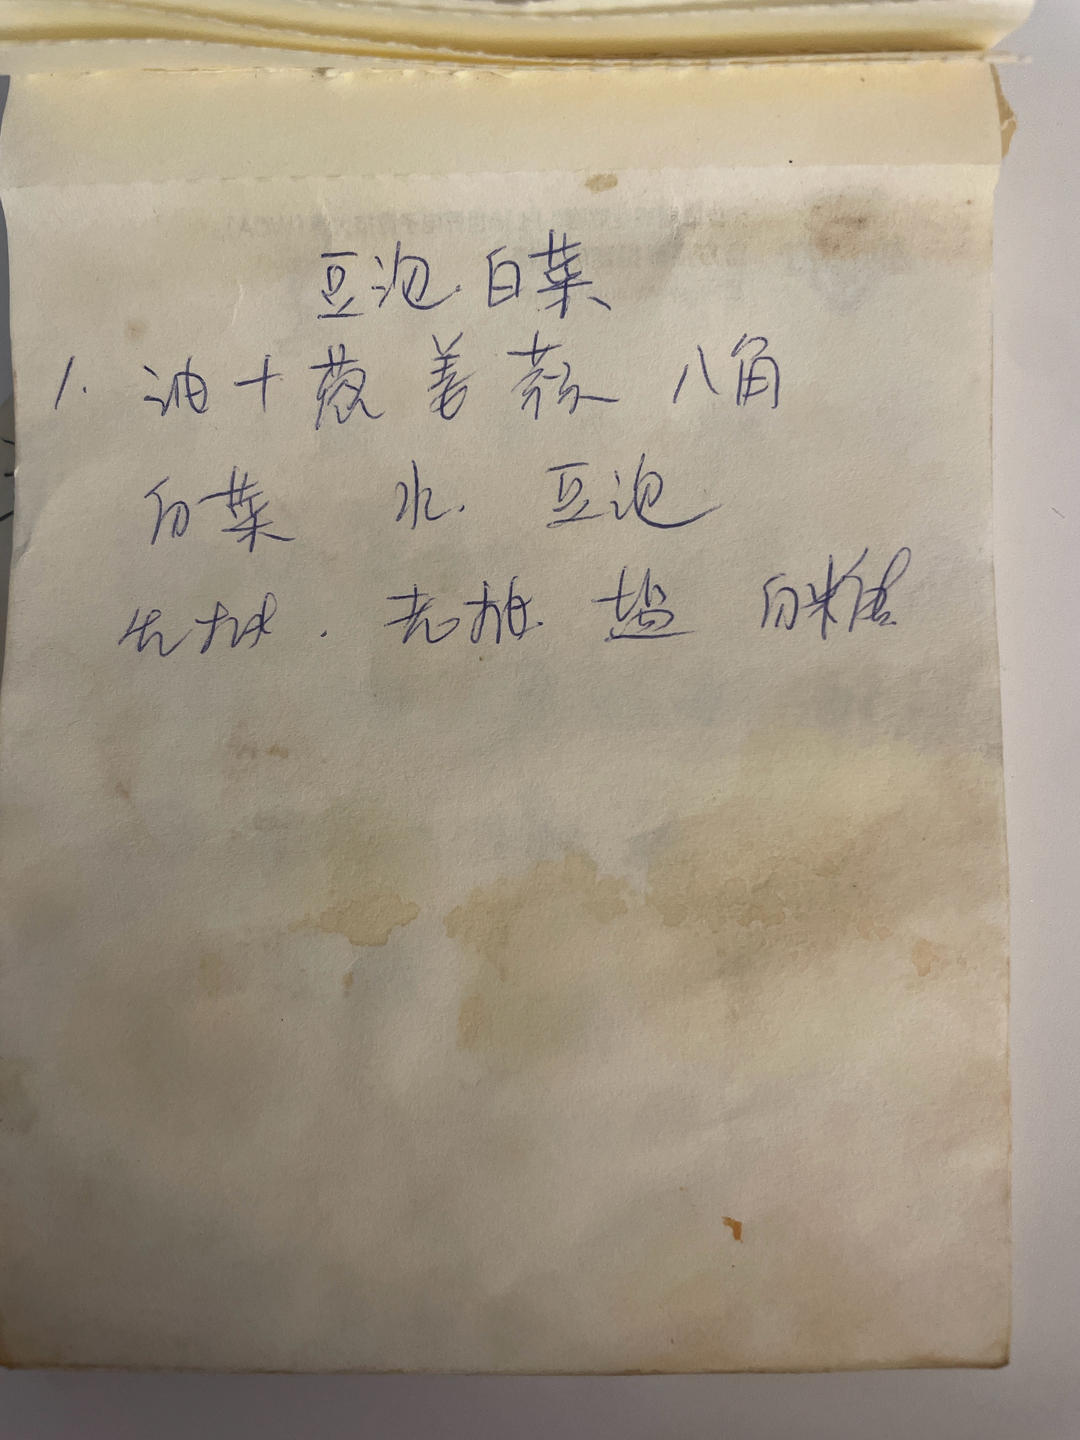 豆泡白菜
1. 油+葱 姜 蒜 八角
白菜 水. 豆泡
生抽. 老抽. 盐 白糖